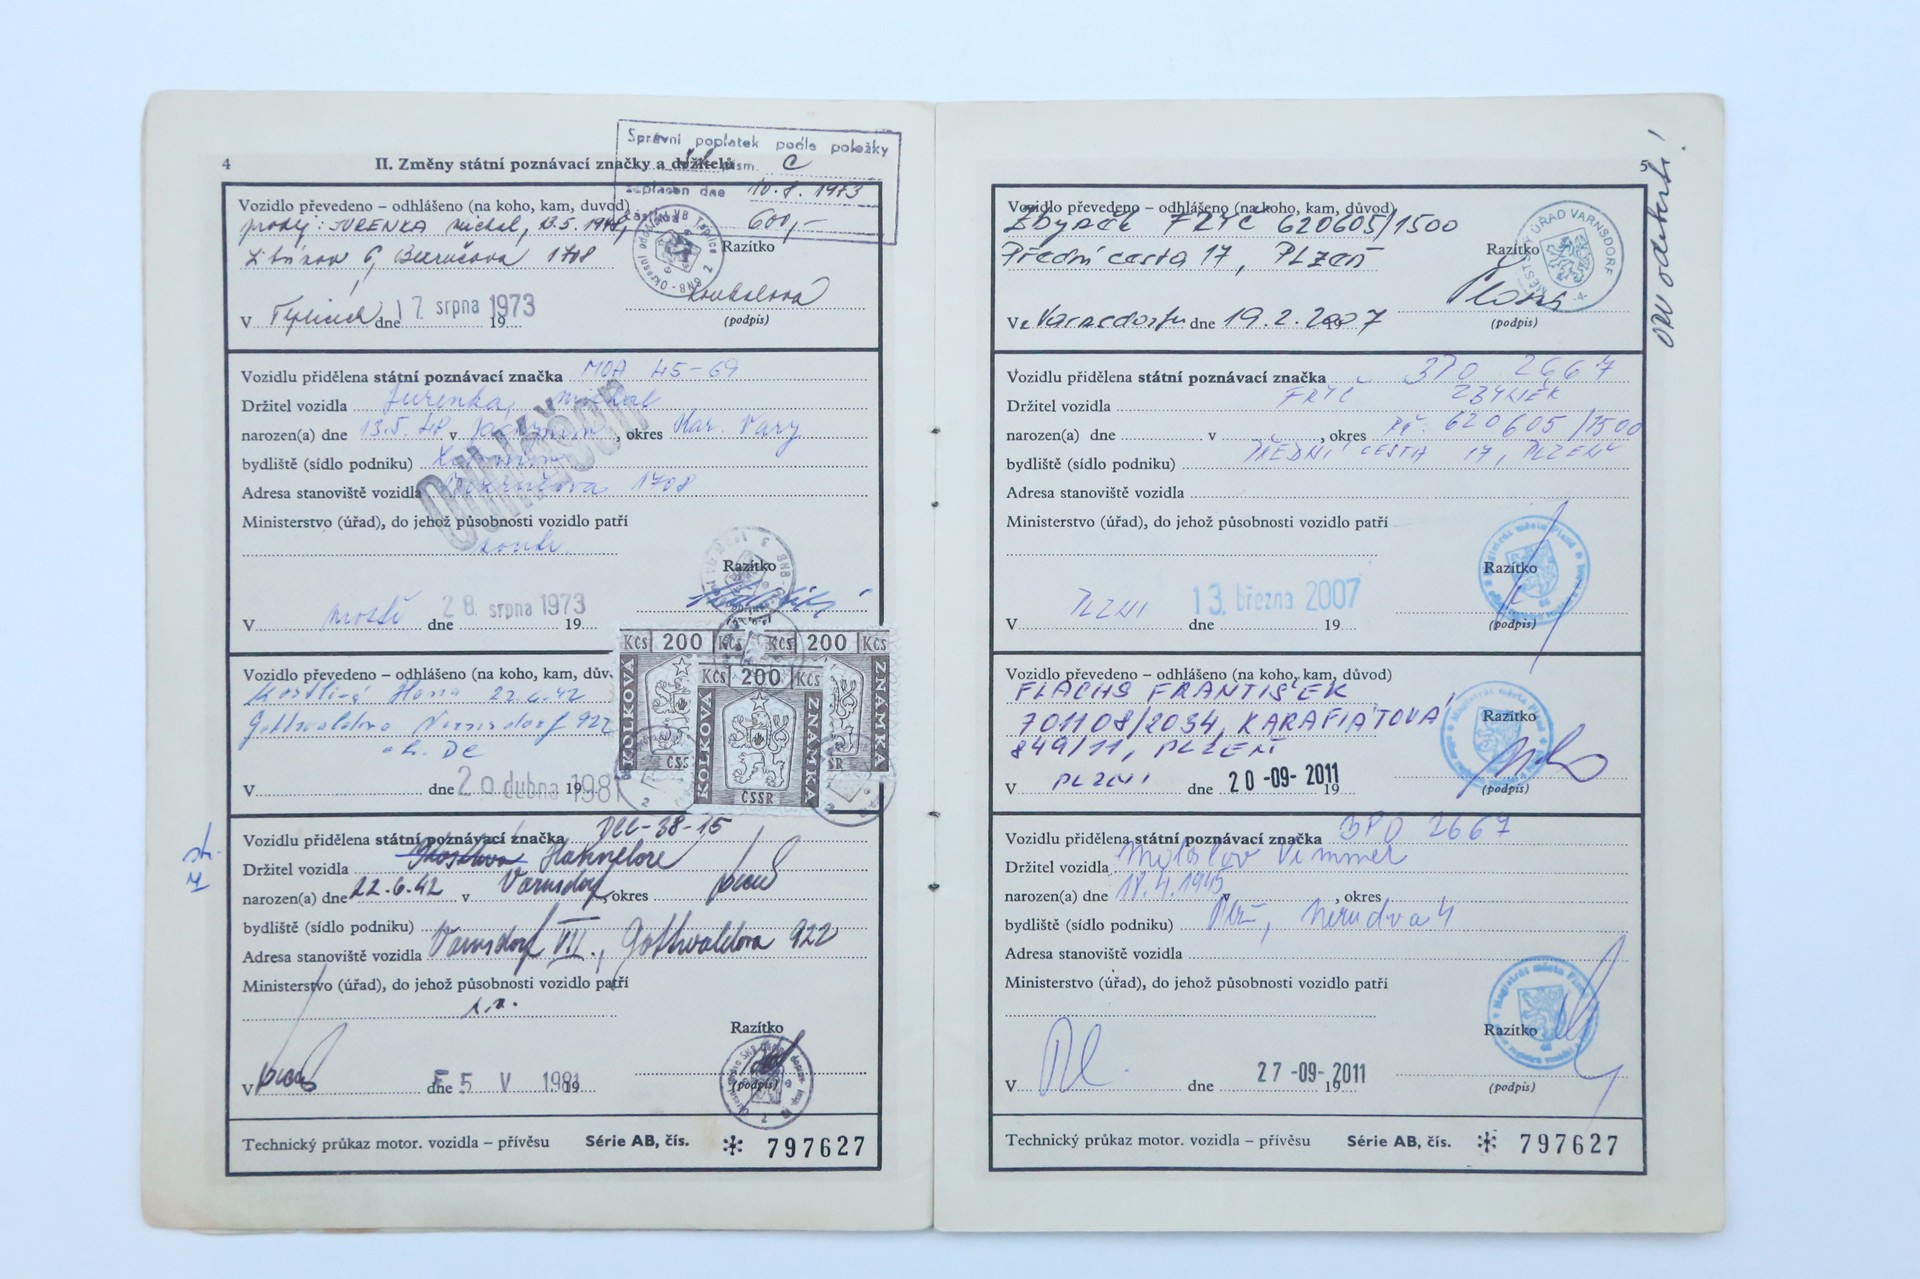 4 II. Změny státní poznávací značky a držitelů
Správní poplatek podle položky
písm. C
zaplacen dne 10.8.1973
částkou 600,-
Vozidlo převedeno – odhlášeno (na koho, kam, duvod)
prodej: JURENKA Michal, 13.5.1948,
1708
Razítko
V Teplicích dne 17. srpna 1973 19....
(podpis)
Vozidlu přidělena státní poznávací značka MOA 45-69
Držitel vozidla Jurenka, Michal
narozen(a) dne 13.5.48 v , okres Kar. Vary
bydliště (sídlo podniku)
Adresa stanoviště vozidla 1708
Odhlášen
Ministerstvo (úřad), do jehož působnosti vozidlo patří
soukr.
Razítko
V Mostě dne 28. srpna 1973 19....
Vozidlo převedeno – odhlášeno (na koho, kam, dův
Hana 22.6.42
Gottwaldova Varnsdorf 922
o.k. DC
V dne 20 dubna 1981 19
Kčs 200 Kčs Kčs 200 Kčs
Kčs 200 Kčs
KOLKOVA ZNÁMKA
KOLKOVA ZNÁMKA
ČSSR
Vozidlu přidělena státní poznávací značka DCC-38-15
Držitel vozidla Hannelore
narozen(a) dne 22.6.42 v Varnsdorf, okres
bydliště (sídlo podniku)
Adresa stanoviště vozidla Varnsdorf VII., Gottwaldova 922
Ministerstvo (úřad), do jehož působnosti vozidlo patří
Razítko
V dne 5 V 1981 19....
(podpis)
Technický průkaz motor. vozidla – přívěsu Série AB, čís. ✻ 797627
5
ORV odebráno!
Vozidlo převedeno – odhlášeno (na koho, kam, důvod)
Zbyněk FRYČ 620605/1500
Přední cesta 17, PLZEŇ
Razítko
MĚSTSKÝ ÚŘAD VARNSDORF
-4-
Ve Varnsdorfu dne 19.2.2007
(podpis)
Vozidlu přidělena státní poznávací značka 3P0 2667
Držitel vozidla FRYČ ZBYNĚK
narozen(a) dne v , okres RČ: 620605/1500
bydliště (sídlo podniku) PŘEDNÍ CESTA 17, PLZEŇ
Adresa stanoviště vozidla
Ministerstvo (úřad), do jehož působnosti vozidlo patří
Razítko
V PLZNI dne 13. března 2007 19....
(podpis)
Vozidlo převedeno – odhlášeno (na koho, kam, důvod)
FLACHS FRANTIŠEK
701108/2034, KARAFIÁTOVÁ
849/11, PLZEŇ
Razítko
V PLZNI dne 20-09-2011 19
(podpis)
Vozidlu přidělena státní poznávací značka 3P0 2667
Držitel vozidla Miloslav Vimmer
narozen(a) dne 18.4.1945 v , okres
bydliště (sídlo podniku) Plzeň, Nerudova 4
Adresa stanoviště vozidla
Ministerstvo (úřad), do jehož působnosti vozidlo patří
Razítko
V Pl. dne 27-09-2011 19
(podpis)
Technický průkaz motor. vozidla – přívěsu Série AB, čís. ✻ 797627